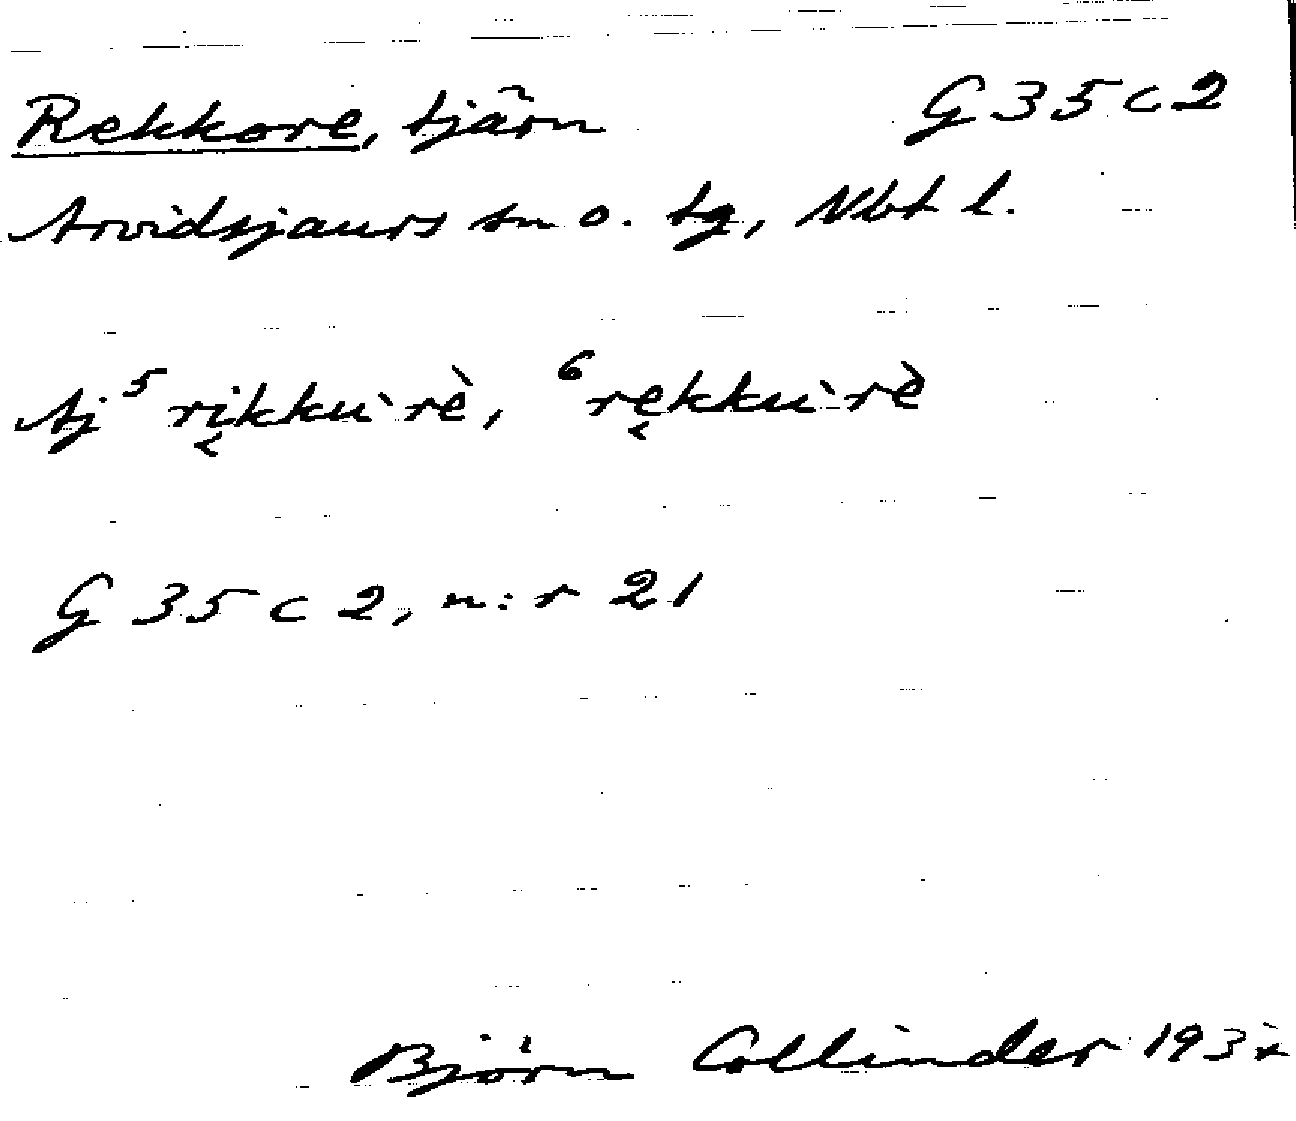 Rekkore, tjärn G 35 c 2
Arvidsjaurs sn o. tg, Nbt l.
Aj ⁵ ri̮kku`rè, ⁶ re̮kku`rè
G 35 c 2, n:r 21
Björn Collinder